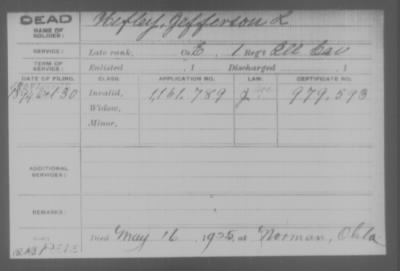 DEAD
NAME OF SOLDIER: Hefley, Jefferson L
SERVICE: Late rank, Co. E, 1 Reg't Ill Cav
TERM OF SERVICE: Enlisted , 1 Discharged , 1
DATE OF FILING. CLASS. APPLICATION NO. LAW. CERTIFICATE NO.
Invalid, 1,161.789 979.593
Widow,
Minor,
ADDITIONAL SERVICES:
REMARKS:
Died May 16 1925, at Norman, Okla